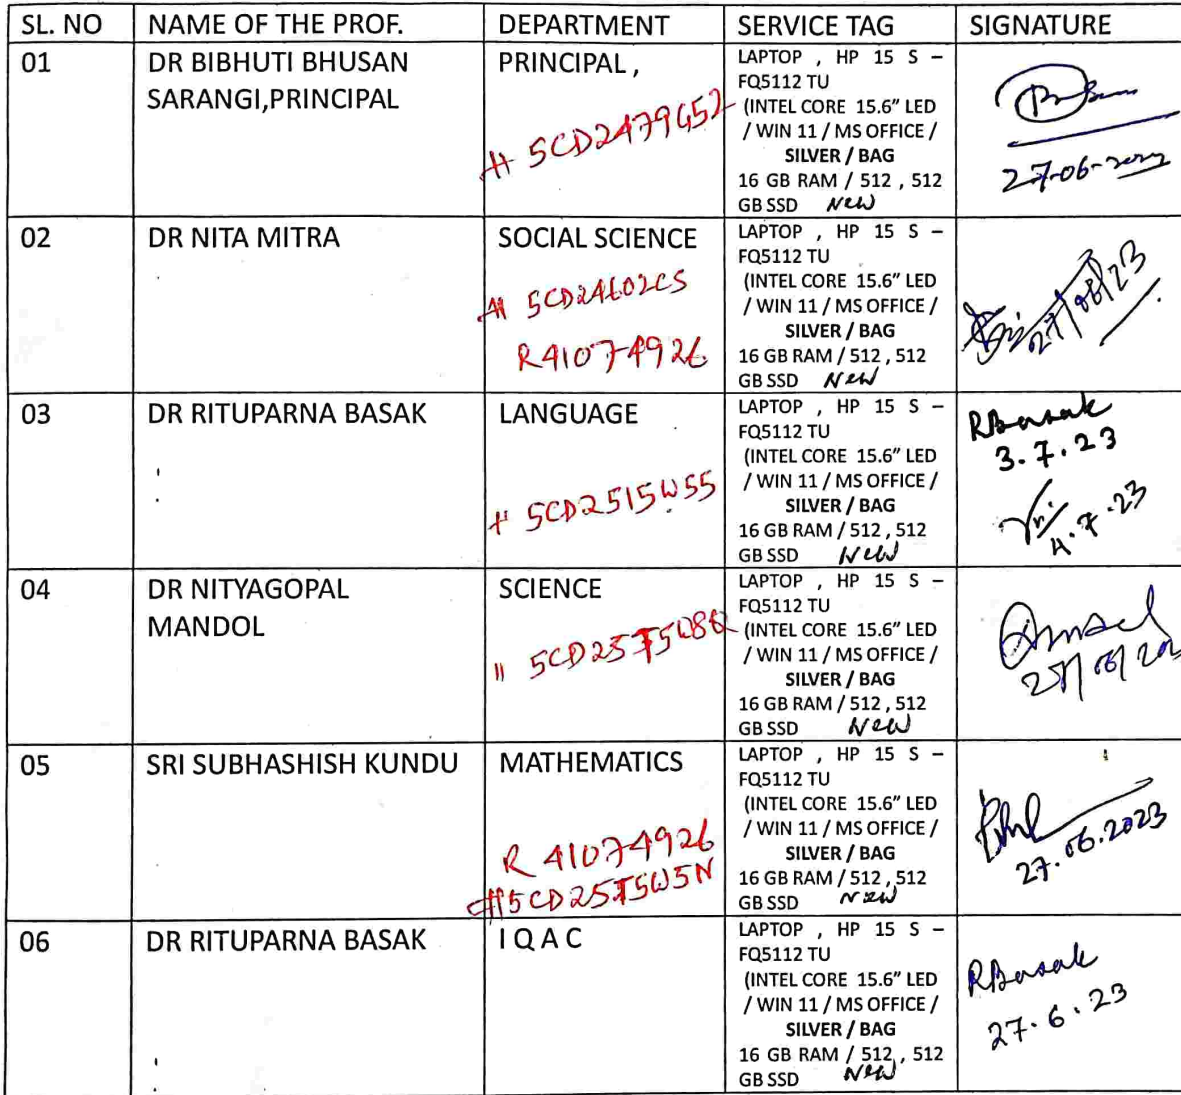 SL. NO NAME OF THE PROF. DEPARTMENT SERVICE TAG SIGNATURE
01 DR BIBHUTI BHUSAN SARANGI,PRINCIPAL
PRINCIPAL ,
# 5CD2479G52
LAPTOP , HP 15 S –
FQ5112 TU
(INTEL CORE 15.6” LED
/ WIN 11 / MS OFFICE /
SILVER / BAG
16 GB RAM / 512 , 512
GB SSD New
27-06-2023
02 DR NITA MITRA
SOCIAL SCIENCE
R41074926
LAPTOP , HP 15 S –
FQ5112 TU
(INTEL CORE 15.6” LED
/ WIN 11 / MS OFFICE /
SILVER / BAG
16 GB RAM / 512 , 512
GB SSD New
03 DR RITUPARNA BASAK
LANGUAGE
# 5CD2515W55
LAPTOP , HP 15 S –
FQ5112 TU
(INTEL CORE 15.6” LED
/ WIN 11 / MS OFFICE /
SILVER / BAG
16 GB RAM / 512 , 512
GB SSD New
RBasak
3.7.23
4.7.23
04 DR NITYAGOPAL
MANDOL
SCIENCE
LAPTOP , HP 15 S –
FQ5112 TU
(INTEL CORE 15.6” LED
/ WIN 11 / MS OFFICE /
SILVER / BAG
16 GB RAM / 512 , 512
GB SSD New
05 SRI SUBHASHISH KUNDU
MATHEMATICS
R 41074926
LAPTOP , HP 15 S –
FQ5112 TU
(INTEL CORE 15.6” LED
/ WIN 11 / MS OFFICE /
SILVER / BAG
16 GB RAM / 512 , 512
GB SSD New
27.06.2023
06 DR RITUPARNA BASAK
I Q A C
LAPTOP , HP 15 S –
FQ5112 TU
(INTEL CORE 15.6” LED
/ WIN 11 / MS OFFICE /
SILVER / BAG
16 GB RAM / 512 , 512
GB SSD New
RBasak
27.6.23